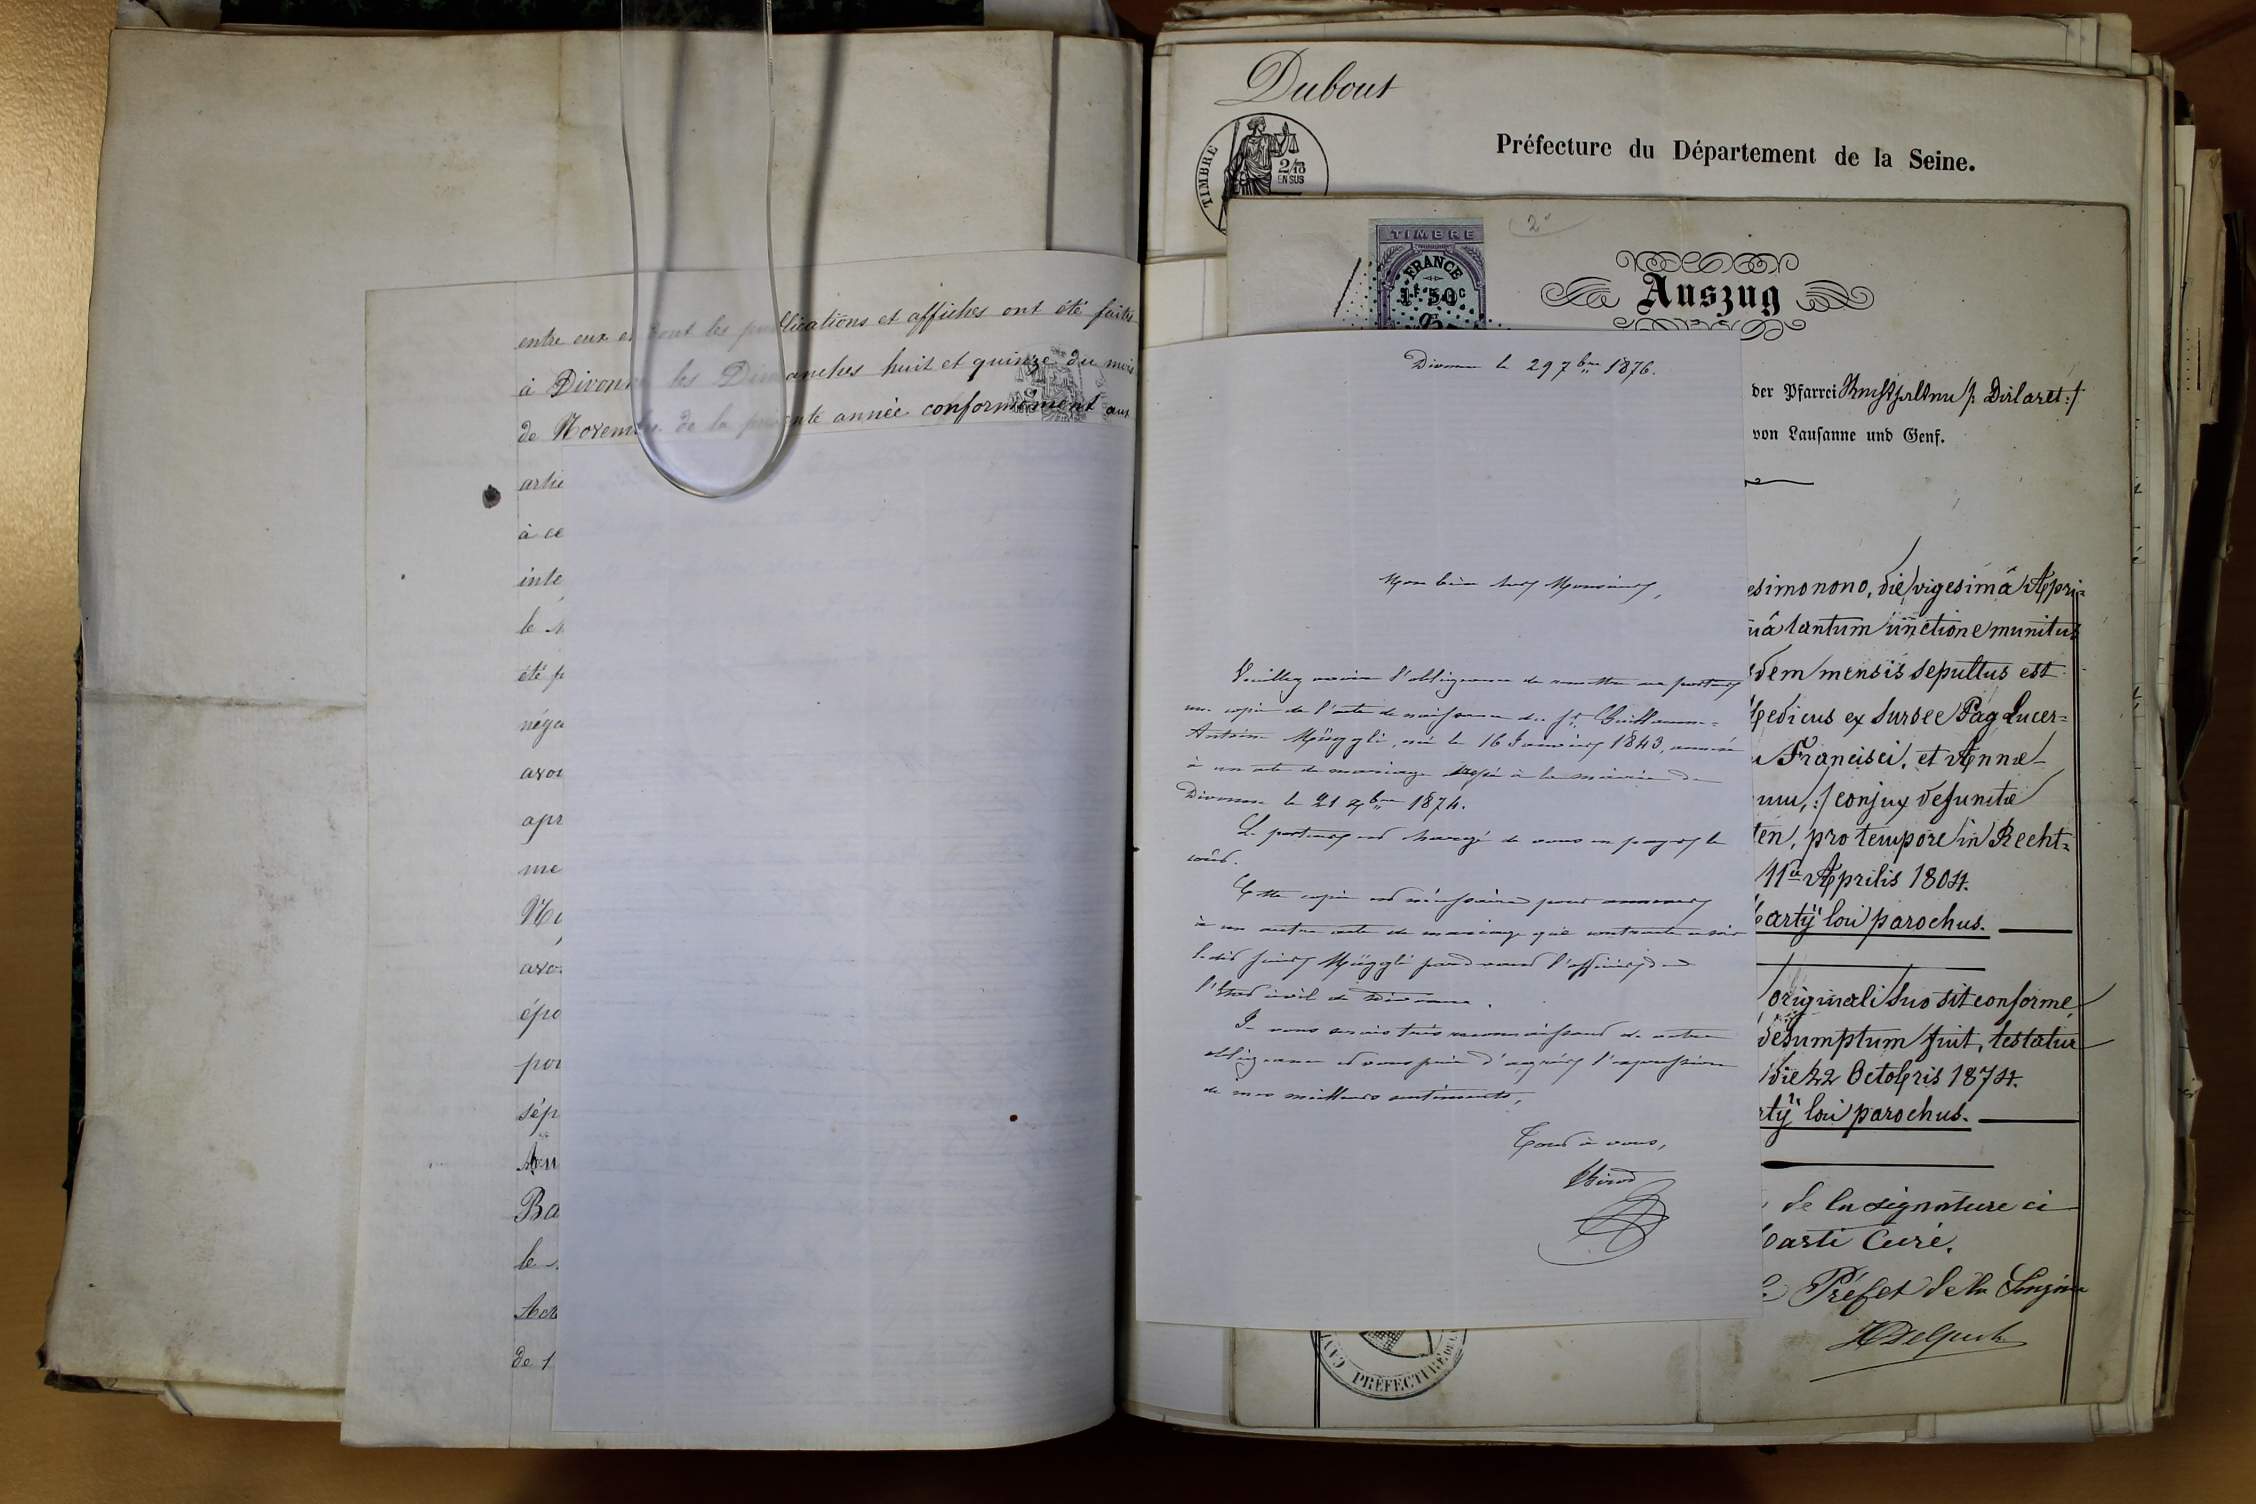 entre eux et dont les publications et affiches ont été faites
à Divonne les Dimanches huit et quinze du mois
de Novembre de la présente année conformément aux
artic
à ce
inte
le
été p
néga
avou
apr
me
No
avo
épo
pou
sép
Ba
le
Act
de 1
Dubout
Préfecture du Département de la Seine.
TIMBRE
2/10
EN SUS
2e
TIMBRE
FRANCE
1F 50c
Auszug
der Pfarrei Rechthalten /: Dirlaret :/
von Lausanne und Genf.
esimo nono, die vigesimâ Apri-
mâ tantum unctione munitus
dem mensis sepultus est
Medicus ex Sursee Pag Lucer=
Francisci, et Annæ
conjux defunctæ
ten, pro tempore in Recht=
11a Aprilis 1804.
arty loci parochus.
originali suo sit conforme,
desumptum fuit, testatur
die 22 Octobris 1874.
rty loci parochus.
de la signature ci
arti Curé.
Préfet de la Singine
PRÉFECTURE DU
Divonne le 29 7bre 1876.
Mon bien cher Monsieur,
Veuillez avoir l'obligeance de remettre au porteur
une copie de l'acte de naissance du Sr. Guillaume=
Antoine Müggli, né le 16 Janvier 1843, annexé
à un acte de mariage dressé à la mairie de
Divonne le 21 9bre 1874.
Le porteur est chargé de vous en payer le
coût.
Cette copie est nécessaire pour annexer
à un autre acte de mariage que contracte ce soir
ledit sieur Müggli pardevant l'officier de
l'Etat civil de Divonne.
Je vous serais très reconnaissant de votre
obligeance et vous prie d'agréer l'expression
de mes meilleurs sentiments,
Tout à vous,
Girod